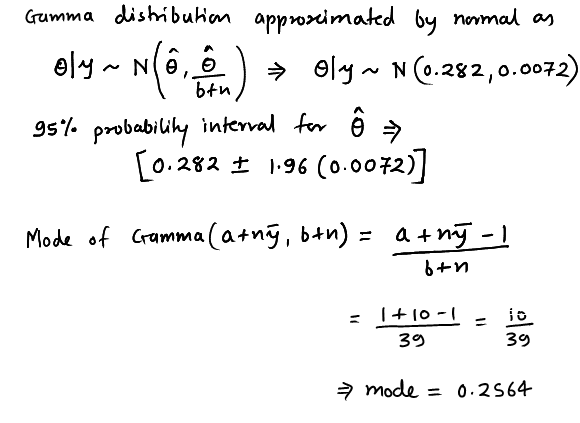 Gamma distribution approximated by normal as
θ|y ~ N(θ̂, θ̂/(b+n)) ⇒ θ|y ~ N(0.282, 0.0072)
95% probability interval for θ̂ ⇒
[0.282 ± 1.96 (0.0072)]
Mode of Gamma(a+nȳ, b+n) = (a+nȳ-1)/(b+n)
= (1+10-1)/39 = 10/39
⇒ mode = 0.2564